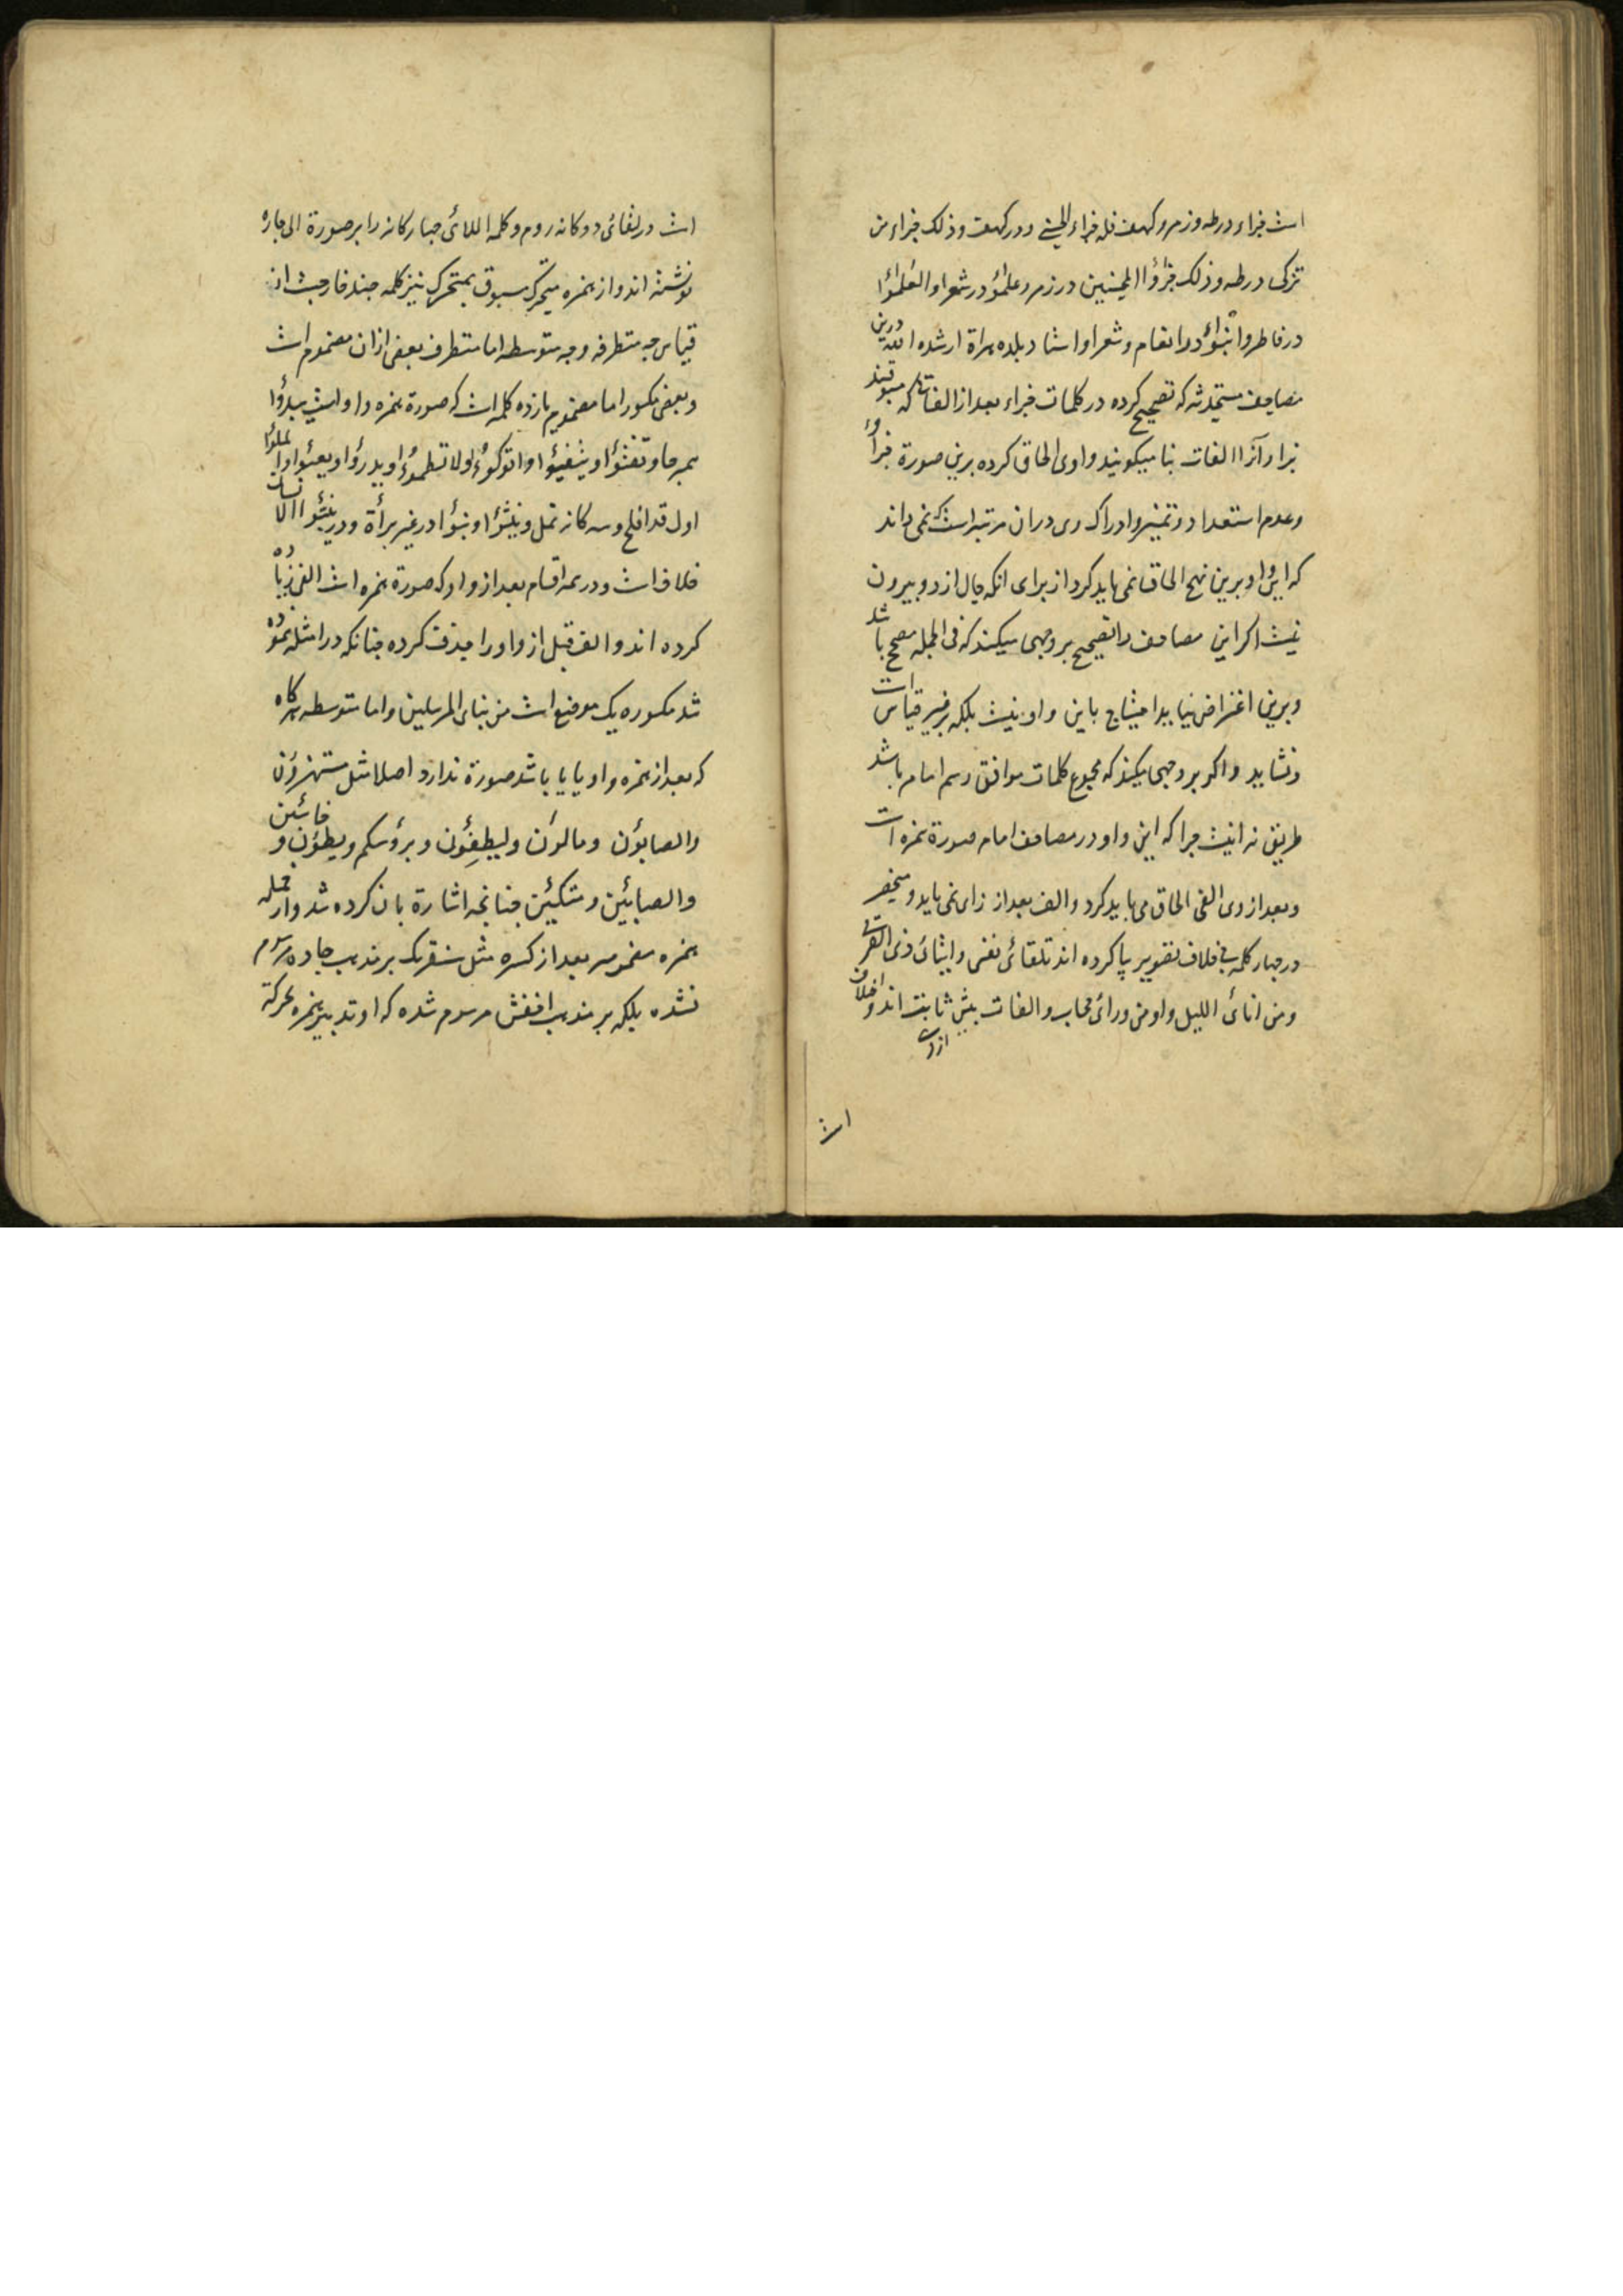 است جزاء در طه و زمر و کهف فله جزاء الحسنی و در کهف و ذلک جزاء من
تزکی در طه و ذلک جزؤا المحسنین در زمر و علمؤا در شعرا و العلمؤا
در فاطر و انبؤا در انعام و شعرا و اشا در بلده هراة ارشده الله درین
مصاحف مستحدثه که تصحیح کرده در کلمات جزاء بعد از الفاتها که مسبوقند
بزا و آنرا الفات بنا میکویند واوی الحاق کرده برین صورة جزاوء
و عدم استعداد و تمییز و ادراک وی دران مرتبه است که نمی داند
که این واو برین نهج الحاق نمی باید کرد از برای انکه حال از دو بیرون
نیست اکر این مصاحف را تصحیح بر وجهی میکند که فی الجمله مصحح باشد
و برین اغراض نیاید احتیاج باین واو نیست بلکه بر غیر قیاس است
و نشاید و اکر بر وجهی میکند که مجموع کلمات موافق رسم امام باشد
طریق نه اینست چرا که این واو در مصاحف امام صورة همزه است
و بعد از وی الفی الحاق می باید کرد و الف بعد از زای نمی باید و منحصر
در چهار کلمه بخلاف تقویر یا کرده اند تلقائ نفسی و ایتائ ذی القربی
و من انائ اللیل و او من ورائ حجاب و الفات بیش ثابت اند و خلاف
ازوی
است
است در لقائ دوکانه روم و کلمه اللائ چهارکانه را بر صورة الی جاره
نوشته اند و از همزه متحرک مسبوق بمتحرک نیز کلمه چند خارجست از
قیاس چه متطرفه و چه متوسطه اما متطرف بعضی ازان مضموم است
و بعضی مکسور اما مضموم یازده کلمه است که صورة همزه واو است یبدؤا
هر جا و تفتؤا و یتفیؤا و اتوکؤا و لا تظمؤا و یدرؤا و یعبؤا و الملؤا
اول قد افلح و سه کانه نمل و ینشؤا و نبؤا در غیر براة و در ینبؤا الانسان
خلاف است و در همه اقسام بعد از واو که صورة همزه است الفی زیاده
کرده اند و الف قبل از واو را حذف کرده چنانکه در امثله نموده
شد مکسوره یک موضع است من نبای المرسلین و اما متوسطه هرکاه
که بعد از همزه واو یا یا باشد صورة ندارد اصلا مثل مستهزؤن
و الصابؤن و مالؤن و لیطفؤن و برؤسکم و یطؤن و خاسئین
و الصابئین و متکئین چنانچه اشارة بان کرده شد و از جمله
همزه مضمومه بعد از کسره مثل سنقرئک بر مذهب جاده مرسوم
نشده بلکه بر مذهب اخفش مرسوم شده که او تدبیر همزه بحرکة